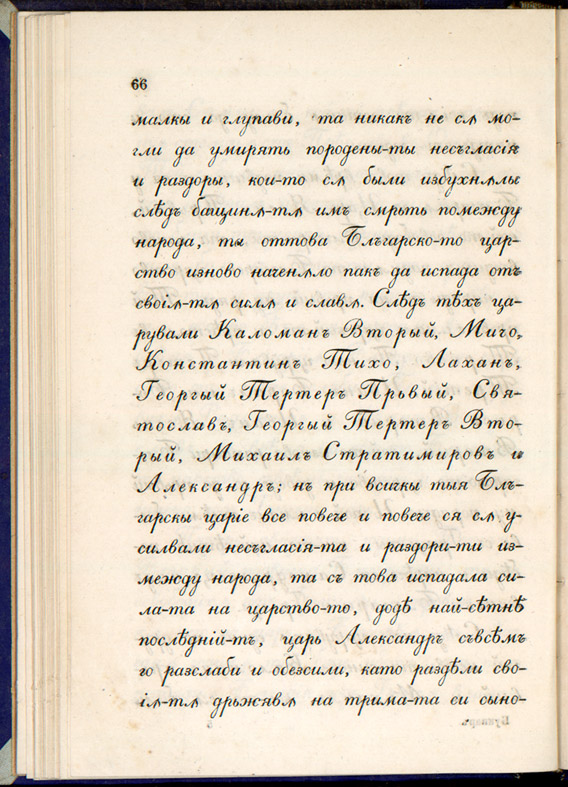 66
малкы и глупави, та никакъ не сѫ мо-
гли да умирять породены-ты несъгласія
и раздоры, кои-то сѫ были избухнѫлы
слѣдъ бащинѫ-тѫ имъ смрьть помежду
народа, ты оттова Блъгарско-то цар-
ство изново наченѫло пакъ да испада отъ
своіѫ-тѫ силѫ и славѫ. Слѣдъ тѣхъ ца-
рували Каломанъ Вторый, Мичо,
Константинъ Тихо, Лаханъ,
Георгый Тертеръ Прьвый, Свя-
тославъ, Георгый Тертеръ Вто-
рый, Михаилъ Стратимировъ и
Александръ; нъ при всичкы тыя Блъ-
гарскы царіе все повече и повече ся сѫ у-
силвали несъгласія-та и раздори-ти из-
между народа, та съ това испадала си-
ла-та на царство-то, додѣ най-сѣтнѣ
послѣдній-тъ, царь Александръ съвсѣмъ
го разслаби и обезсили, като раздѣли сво-
іѫ-тѫ дрьжявѫ на трима-та си сыно-